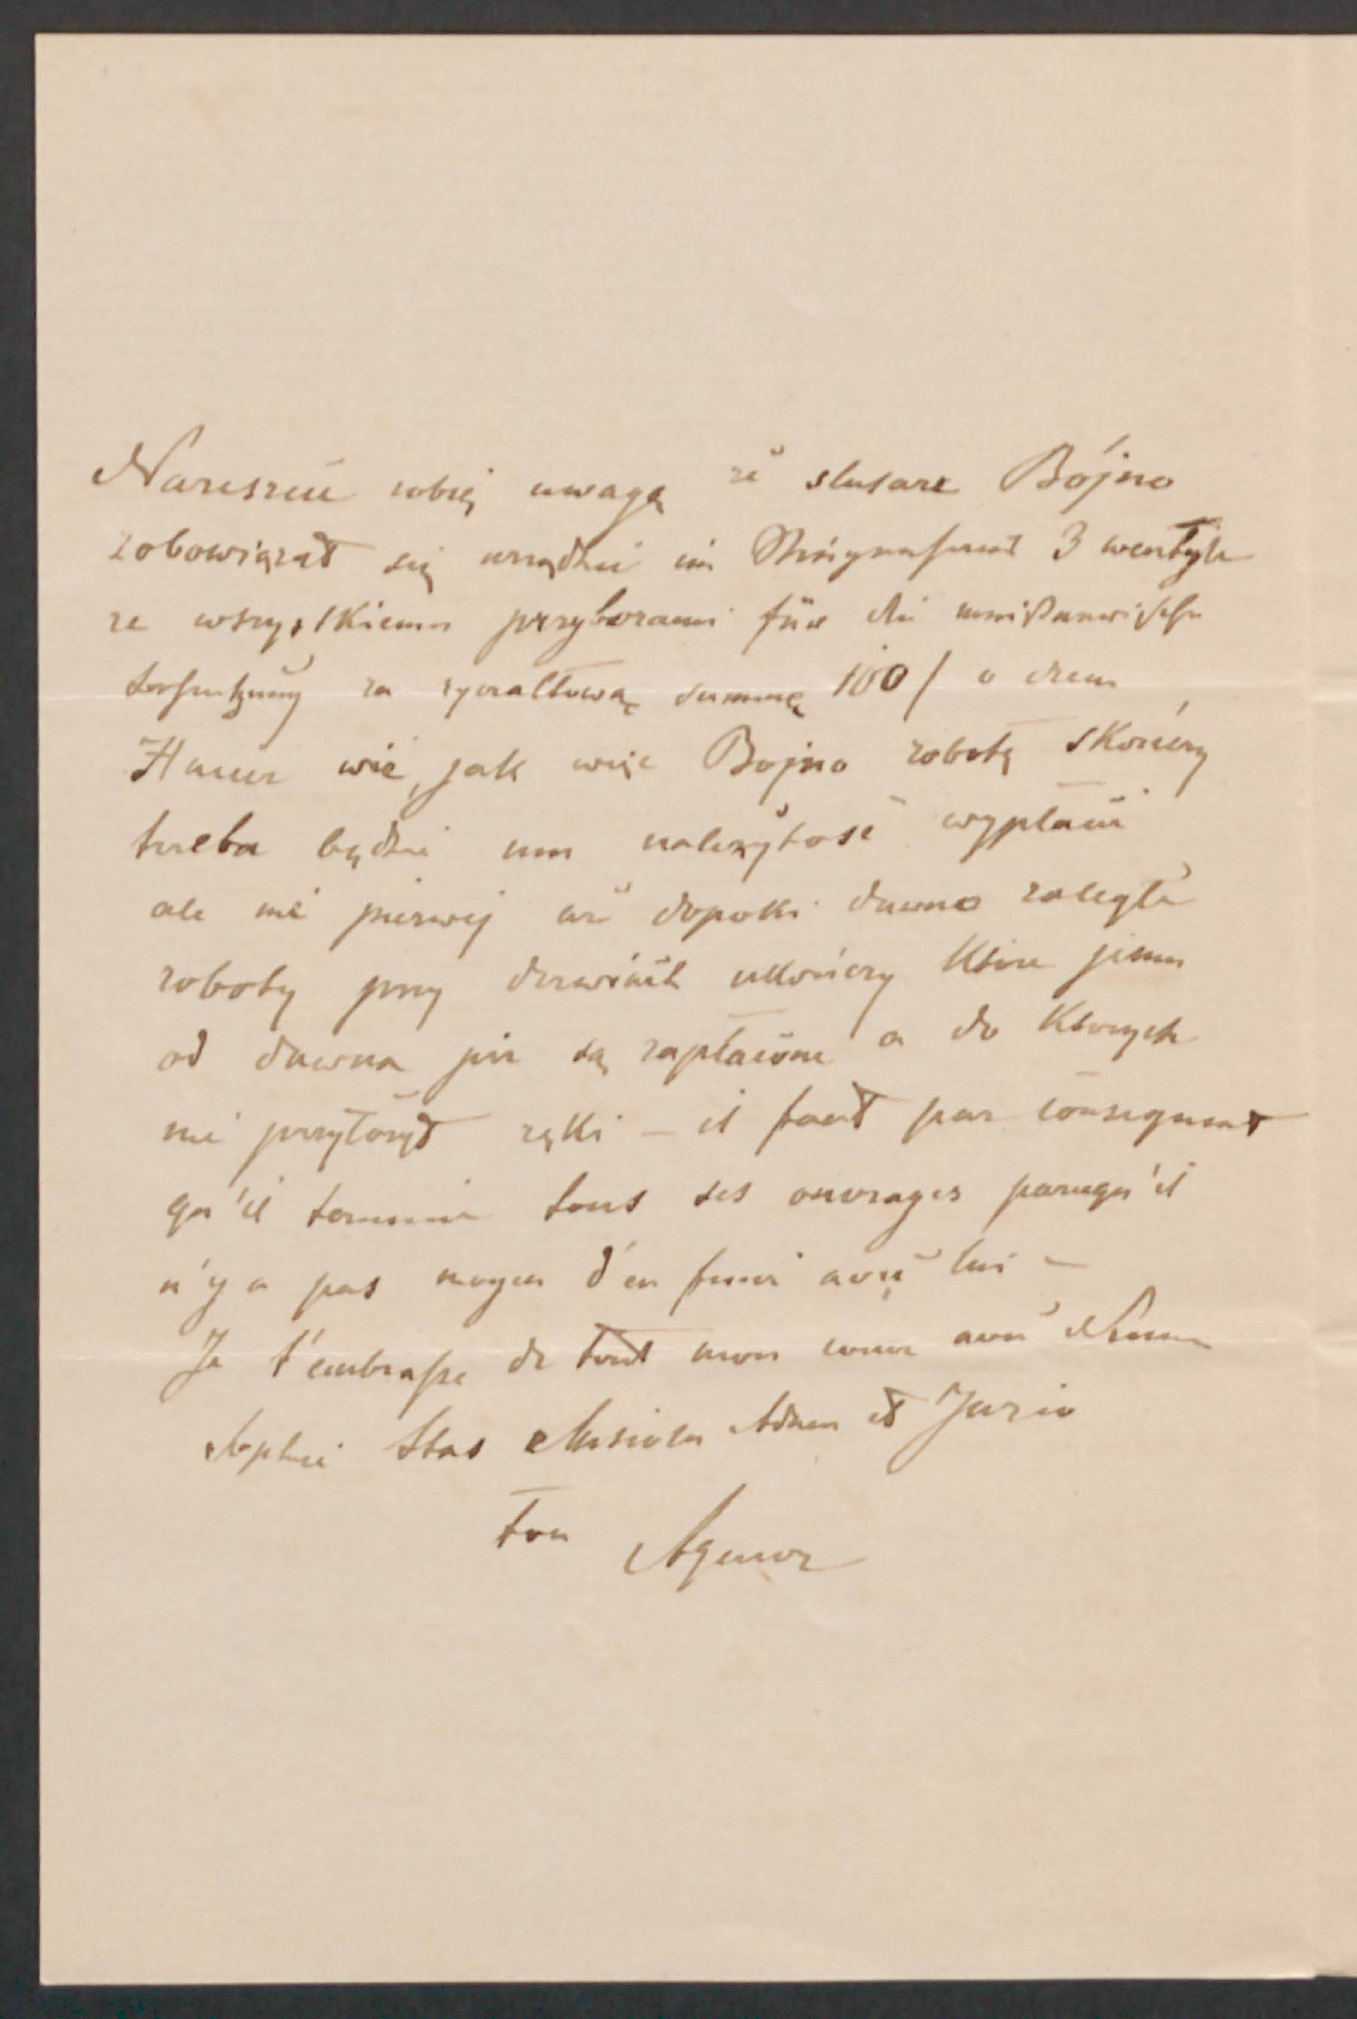 Nareszcie robię uwagę że slusarz Bójno
zobowiązał się urządzić im 3 wentyle
ze wszystkiemu przyborami für die
za ryczałtową summę 100 f o czem
Hauer wie, jak więc Bojno robotę skończy
trzeba będzie mu należytość wypłacić
ale nie pierwej aż dopoki dawno zaległe
roboty przy drzwiach ukończy które jemu
od dawna już są zapłacone a do których
nie przyłożył ręki – il faut par conséquent
qu'il termine tous ses ouvrages parcequ'il
n'y a pas moyen d'en finir avec lui –
Je t'embrasse de tout mon coeur avec
Sophie Stas Adam et Jozio
ton Agenor